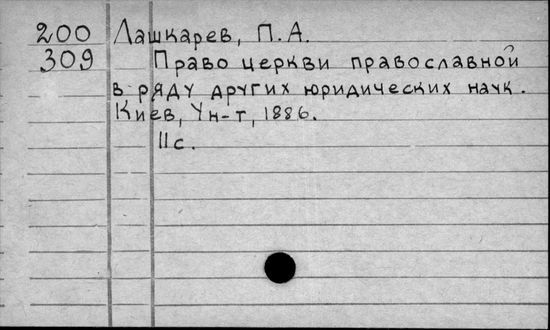 200 Лашкарев, П.А.
309 Право церкви православной
в ряду других юридических наук.
Киев, Ун-т, 1886.
11с.